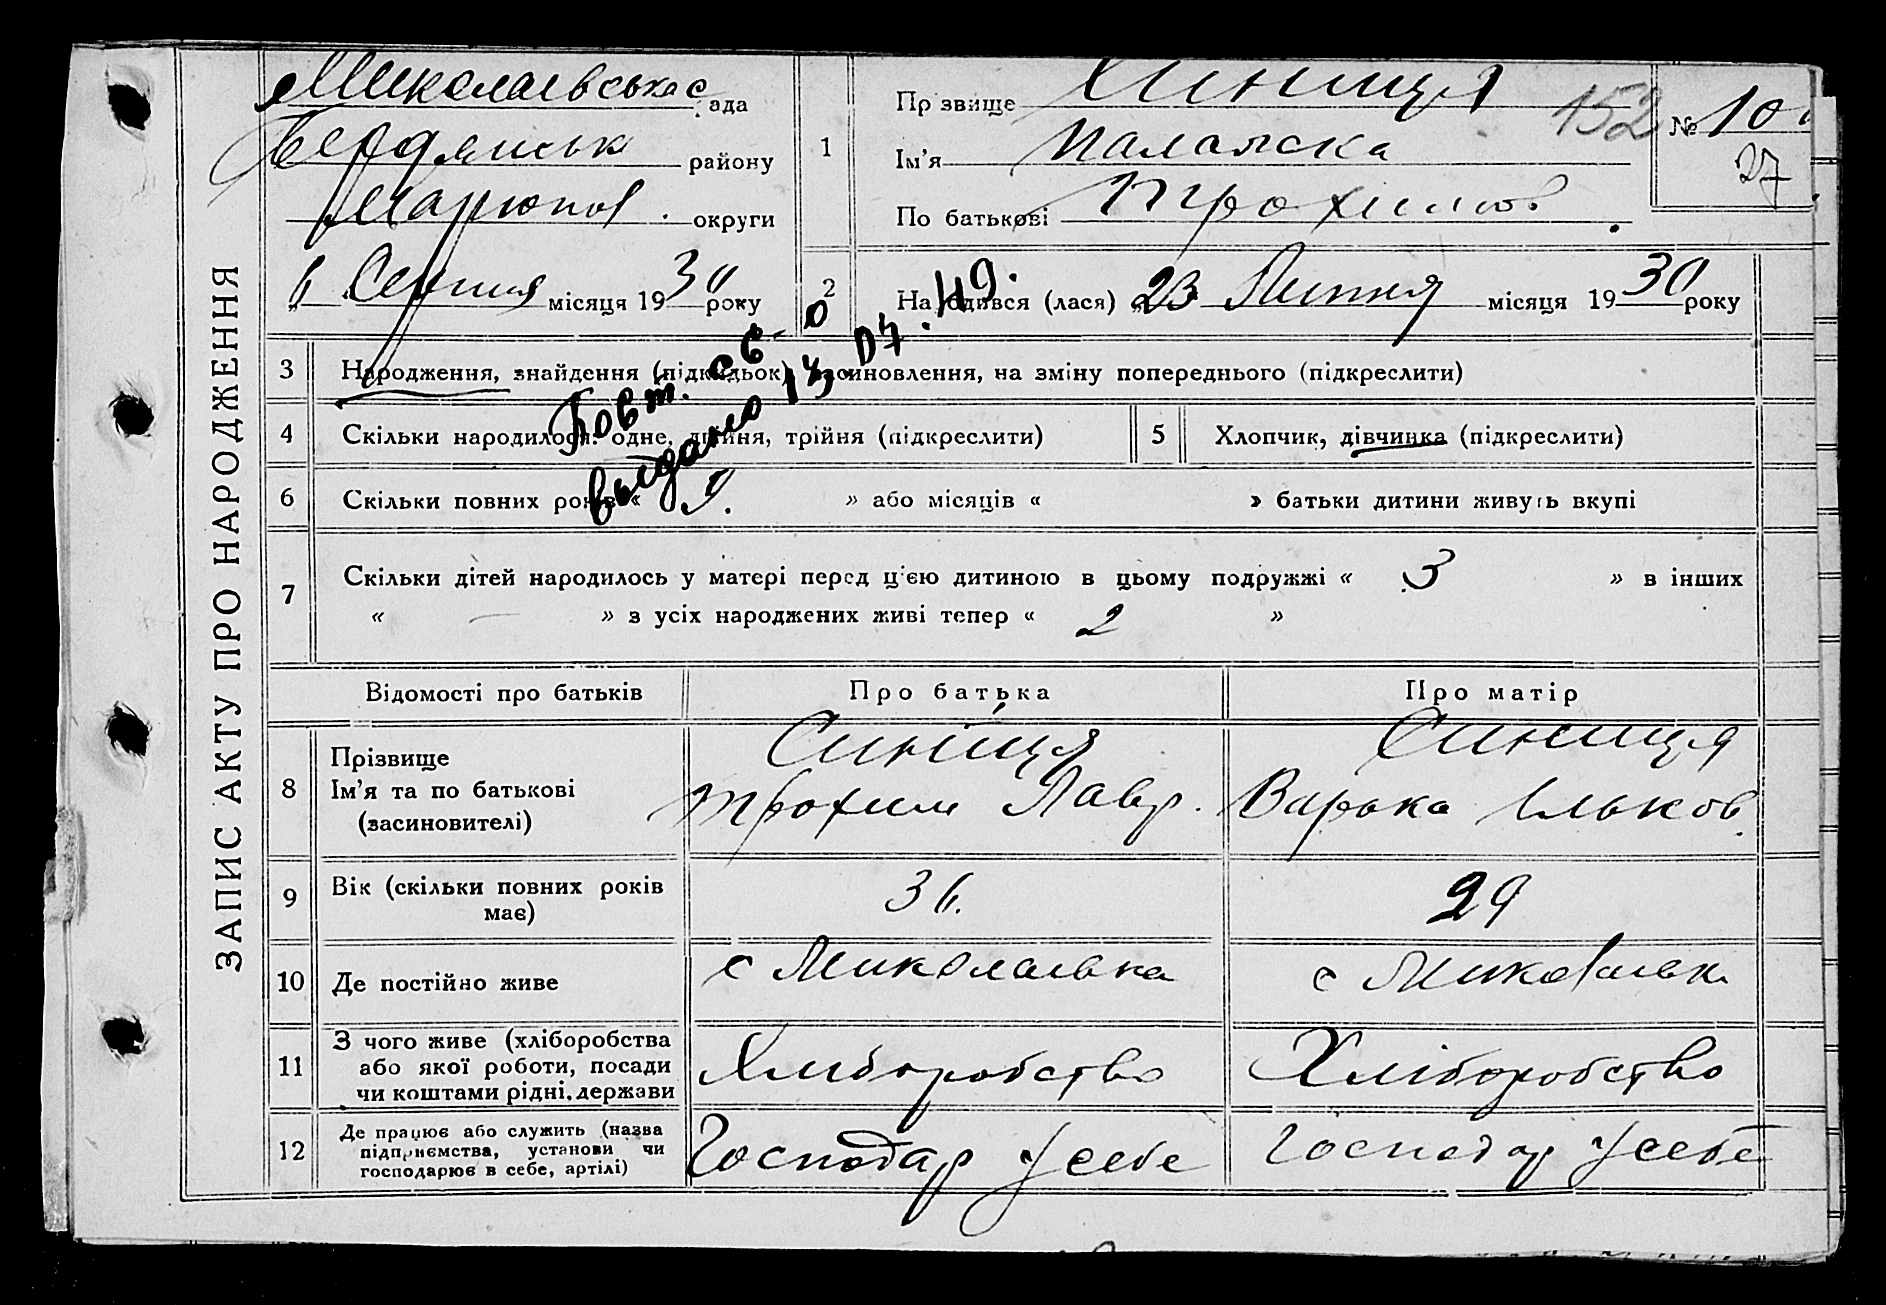 ЗАПИС АКТУ ПРО НАРОДЖЕННЯ
Миколаевська рада
Бердянськ району
Маріюпол. округи
" 6 Серпня місяця 1930 року
1
Прізвище Синиця
Ім'я Палажка
По батькові Трохимов.
152
№ 10
27
2
Народився (лася) „23 Липня місяця 1930 року
Повт. св-о
выдано 13.07.49.
3 Народження, знайдення (підкидьок) засиновлення, на зміну попереднього (підкреслити)
4 Скільки народилося: одне, двійня, трійня (підкреслити)
5 Хлопчик, дівчинка (підкреслити)
6 Скільки повних років « » або місяців « » батьки дитини живуть вкупі
7 Скільки дітей народилось у матері перед ц'єю дитиною в цьому подружжі « 3 » в інших
« — » з усіх народжених живі тепер « 2 »
Відомості про батьків
Про батька
Про матір
8 Прізвище
Ім'я та по батькові
(засиновителі)
Синиця
Трохим Лавр.
Синиця
Варька Ільков.
9 Вік (скільки повних років
має)
36.
29
10 Де постійно живе
с Миколаевка
с Миколаевк
11 З чого живе (хліборобства
або якої роботи, посади
чи коштами рідні, держави
Хліборобство
Хліборобство
12 Де працює або служить (назва
підприємства, установи чи
господарює в себе, артілі)
Господар у себе
Господар у себе